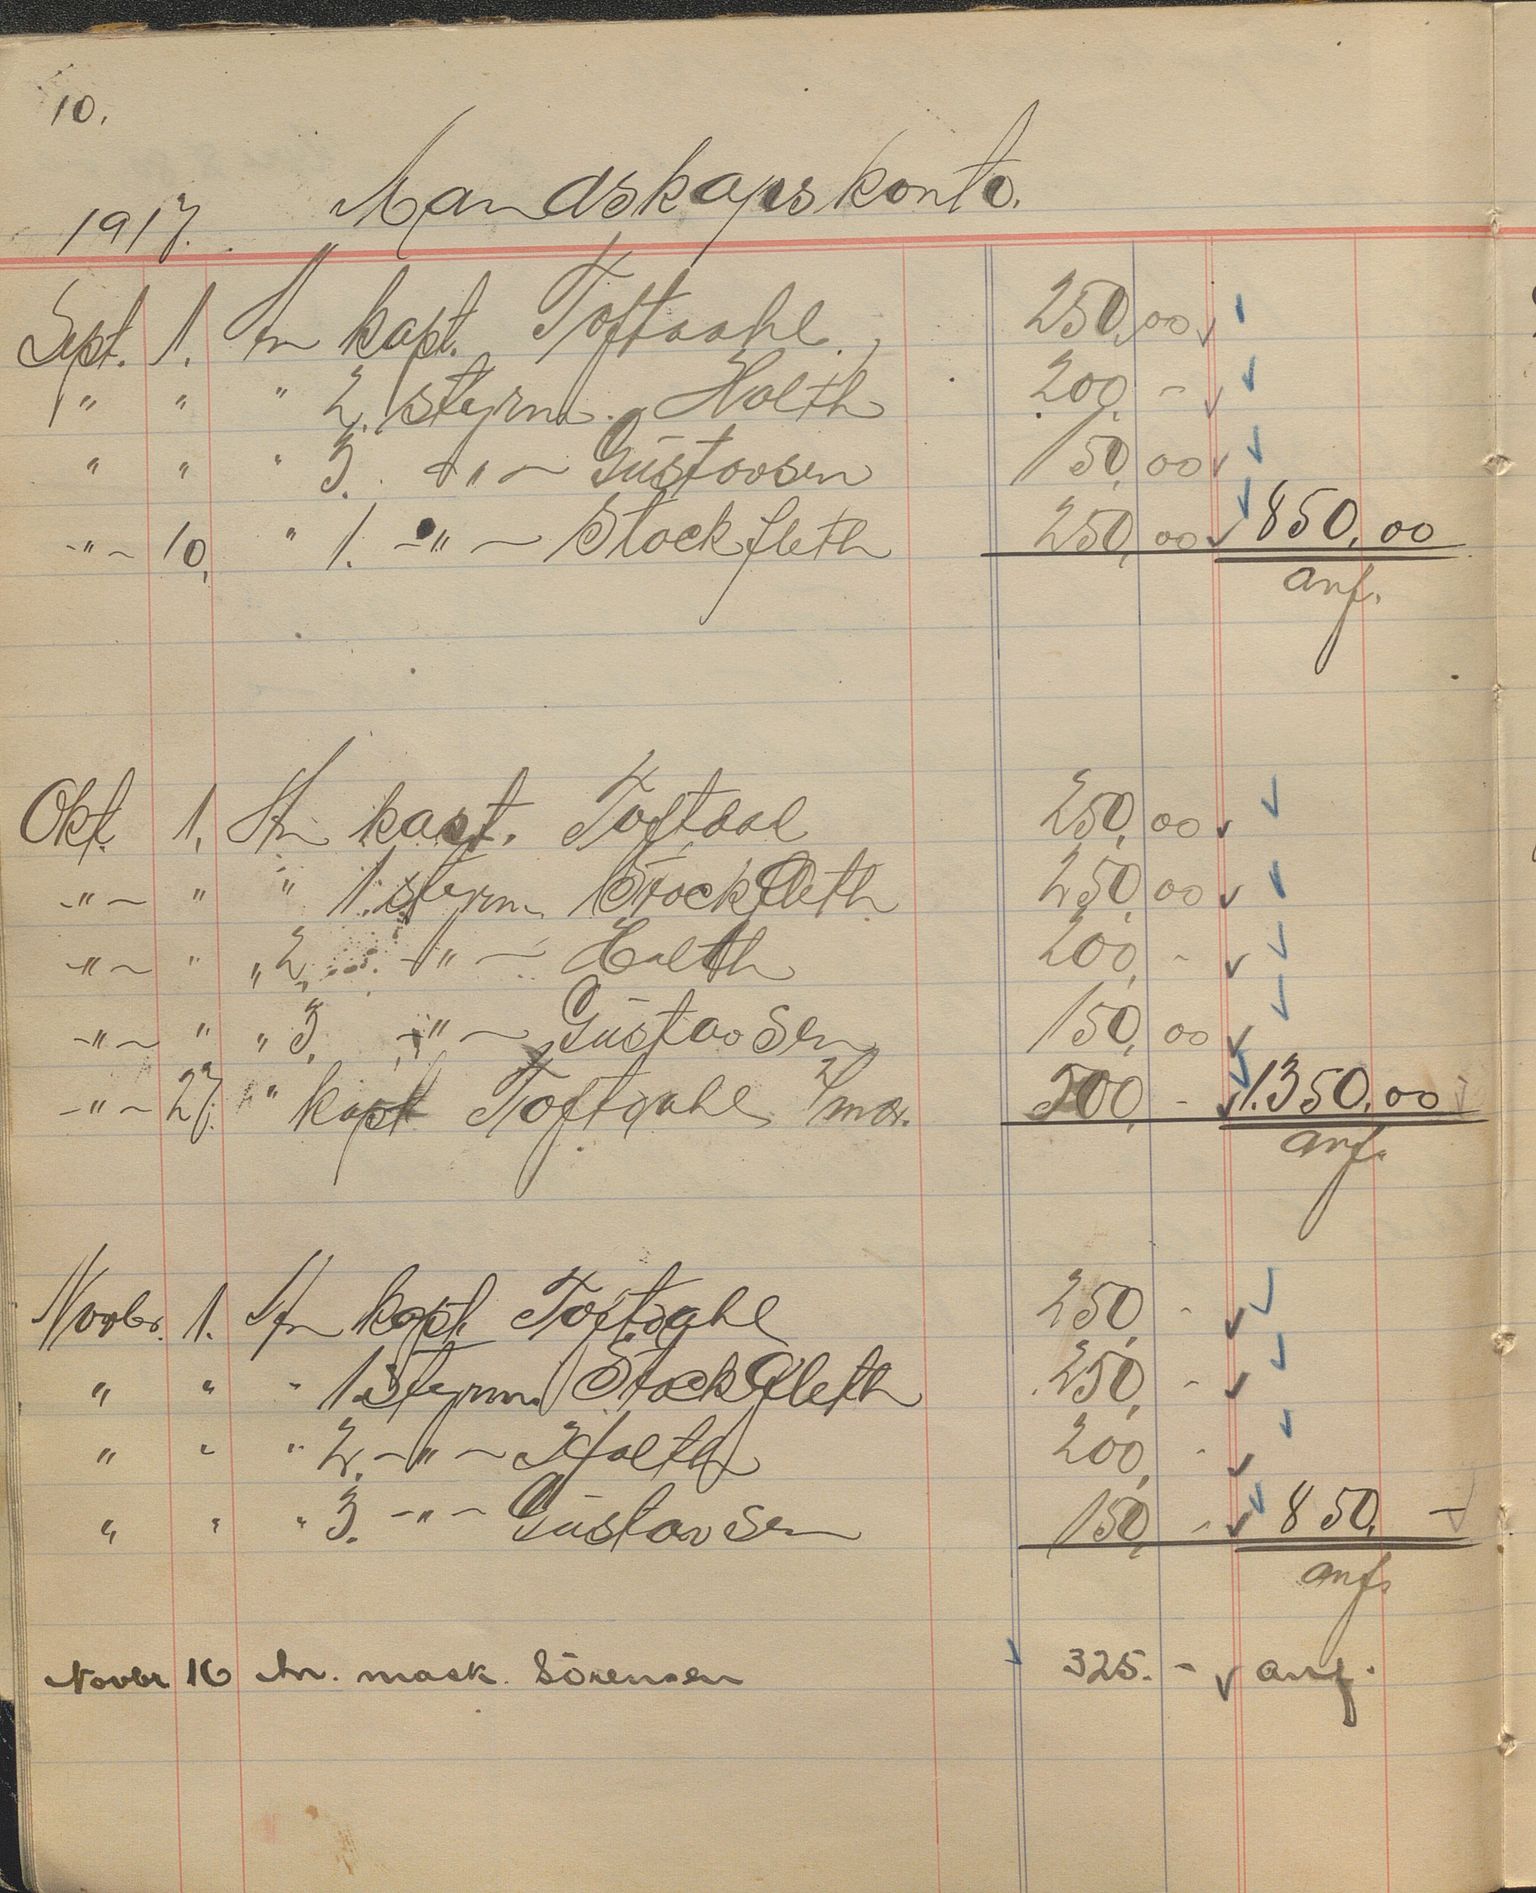 10.
1917. Mandskapskonto.
Sept. 1. An kapt. Toftdahl. 250,00
" " " 2. styrm. Holth 200. -
" " " 3. -"- Gustavsen 150,00
-"- 10, " 1. -"- Stockfleth 250,00 850,00
anf.
Okt. 1, An kapt. Toftdal 250,00
-"- " " 1. styrm. Stockfleth 250,00
-"- " " 2, -"- Holth 200, -
-"- " " 3. -"- Gustavsen 150,00
-"- 27. " kapt Toftdahl 500, - 1.350,00
anf.
Novbr. 1. An kapt. Toftdahl 250, -
" " " 1. Styrm. Stockfleth 250, -
" " " 2. -"- Holth 200, -
" " " 3. -"- Gustavsen 150, - 850, -
anf.
Novbr 16 An. mask. Sörensen 325. - anf.